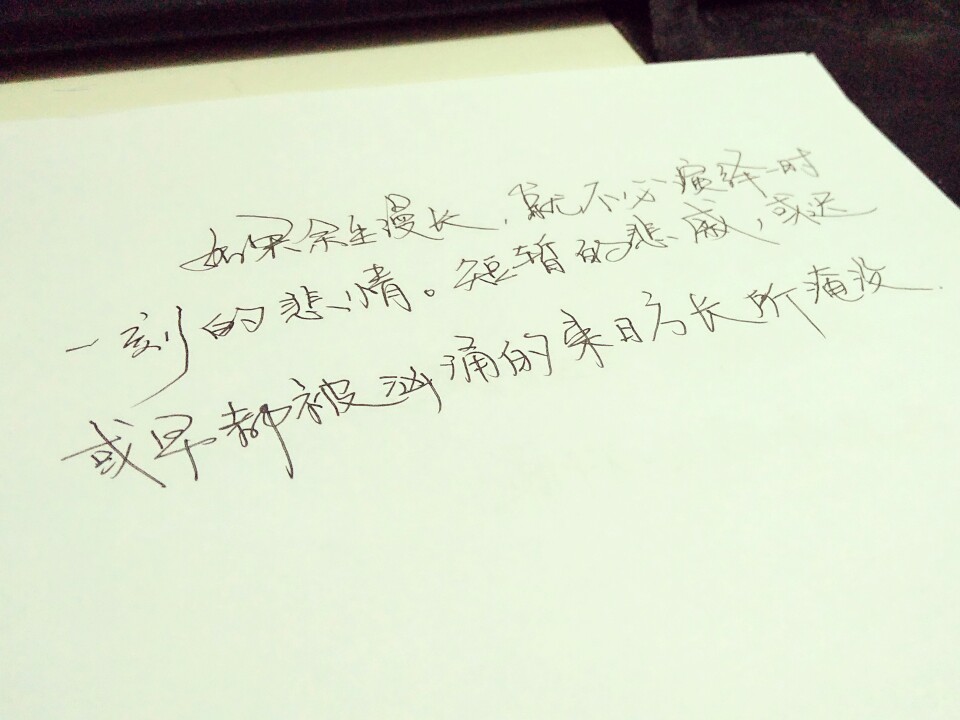 如果余生漫长，就不必演绎一时
一刻的悲情。短暂的悲戚，或迟
或早都被汹涌的来日方长所淹没.